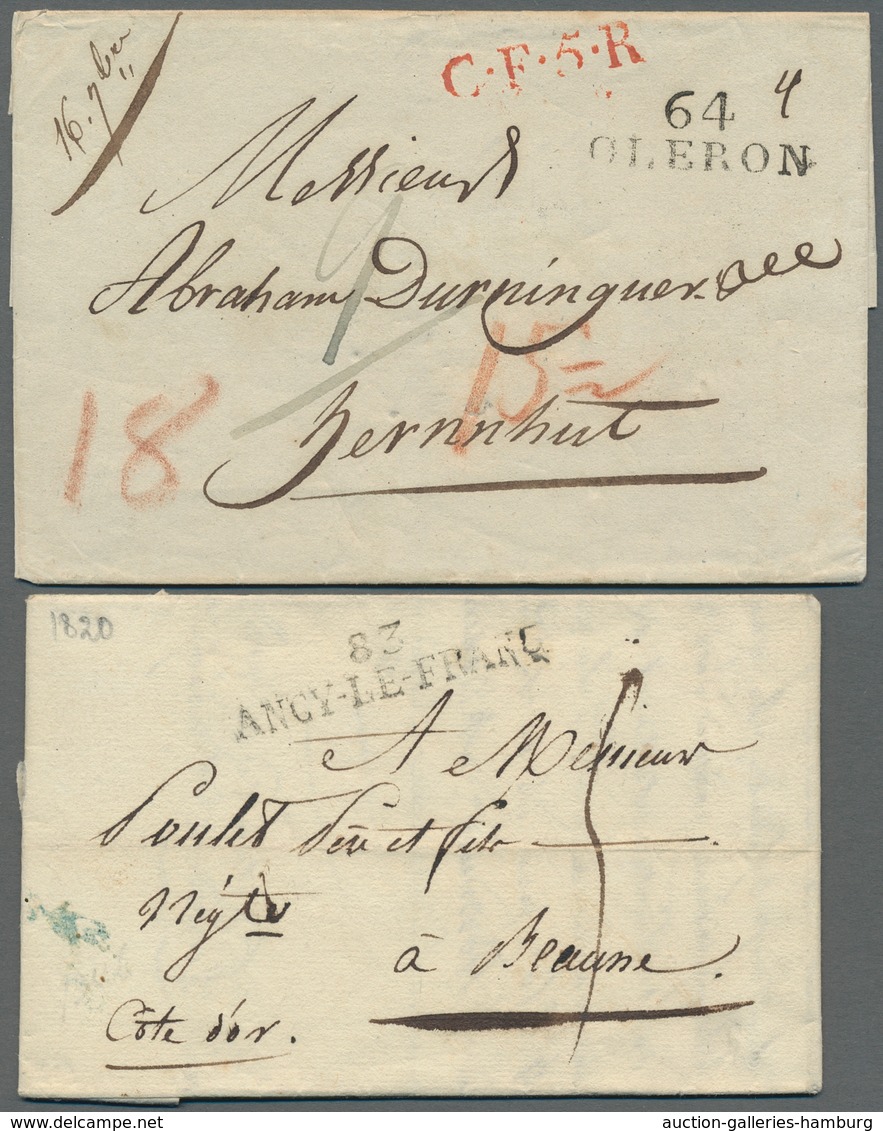 16. 7bre
C·F·5·R
64
4
OLERON
Messieurs
9
Abraham Durninguer &
18
15
Herrnhut
1820
83
ANCY-LE-FRANC
A Monsieur
Poulet Père et fils
Négts
5
à Beaune.
Côte d'or.
auction-galleries-hamburg